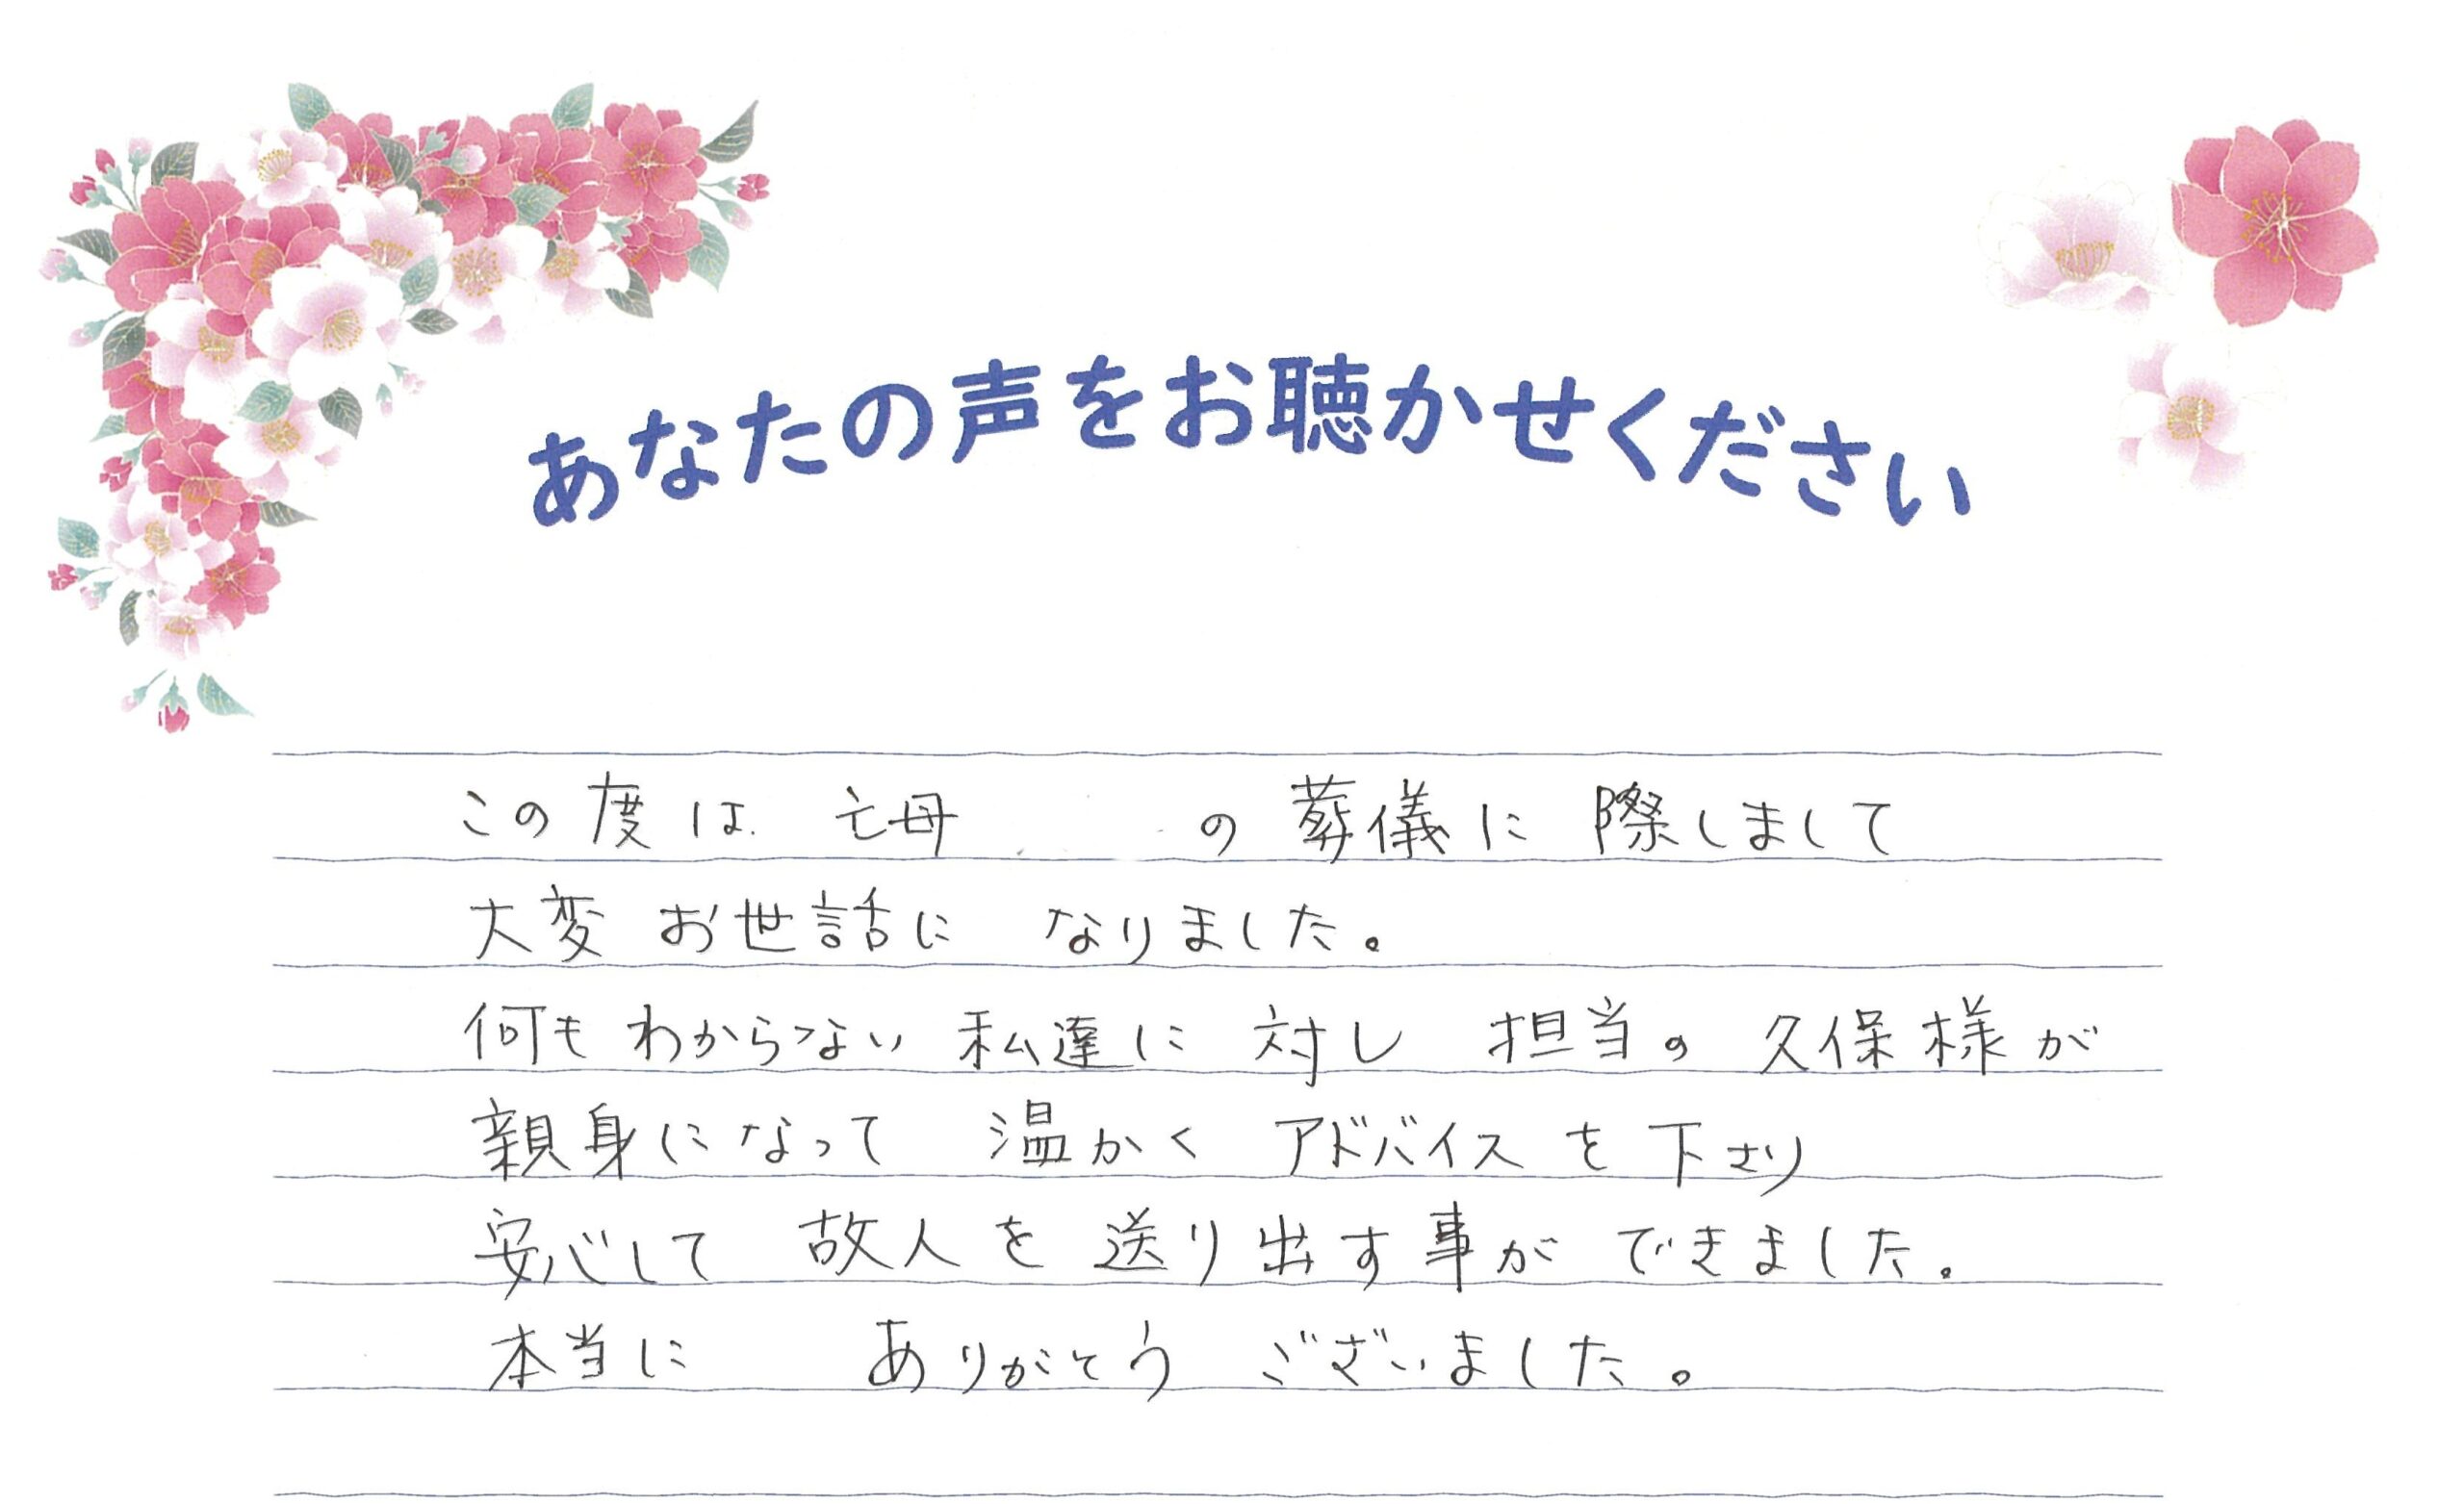 あなたの声をお聴かせください
この度は 亡母 の 葬儀に 際しまして
大変 お世話に なりました。
何も わからない 私達に 対し 担当の 久保様が
親身になって 温かく アドバイスを 下さり
安心して 故人を 送り出す事が できました。
本当に ありがとう ございました。